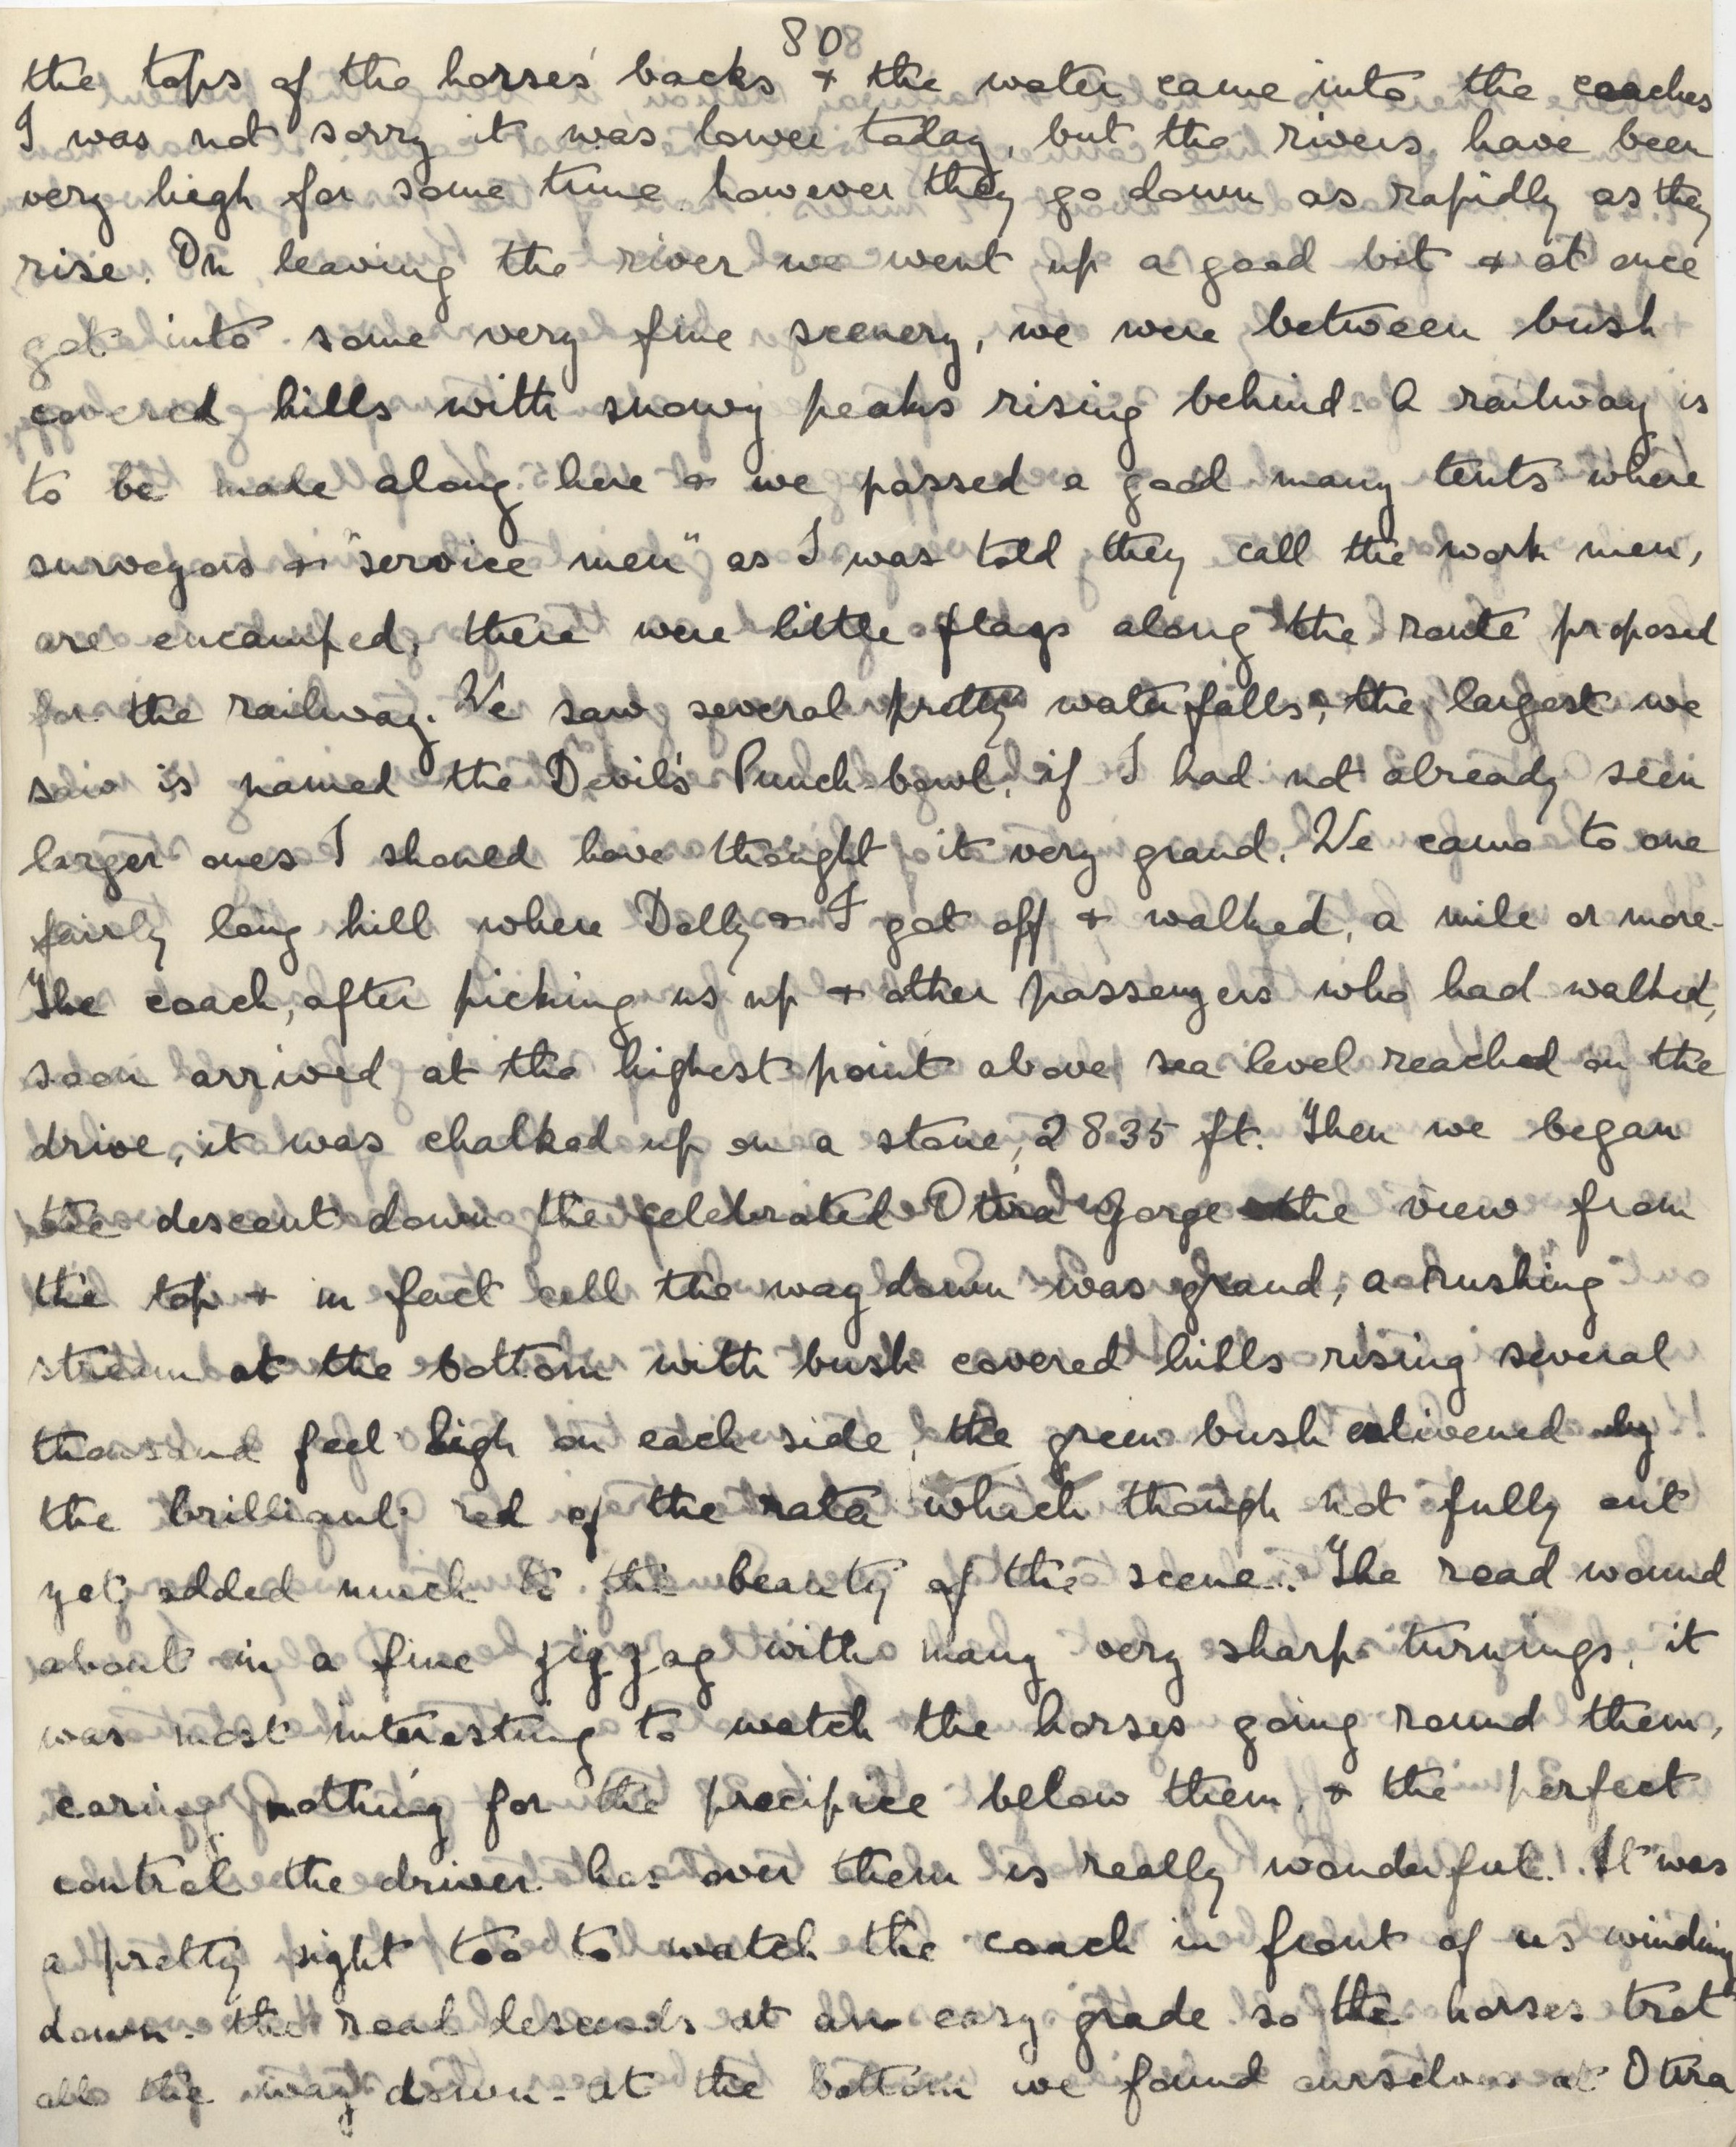 80
the tops of the horses' backs & the water came into the coaches
I was not sorry it was lower today, but the rivers have been
very high for some time however they go down as rapidly as they
rise. On leaving the river we went up a good bit & at once
got into some very fine scenery, we were between bush
covered hills with snowy peaks rising behind. A railway is
to be made along here & we passed a good many tents where
surveyors & "service men" as I was told they call the work men,
are encamped, there were little flags along the route proposed
for the railway. We saw several pretty waterfalls, the largest we
saw is named the Devil's Punch-bowl, if I had not already seen
larger ones I should have thought it very grand. We came to one
fairly long hill where Dolly & I got off & walked, a mile or more.
The coach, after picking us up & other passengers who had walked,
soon arrived at the highest point above sea level reached on the
drive, it was chalked up on a stone, 2835 ft. Then we began
the descent down the celebrated Otira Gorge the view from
the top & in fact all the way down was grand, a rushing
stream at the bottom with bush covered hills rising several
thousand feet high on each side, the green bush enlivened by
the brilliant red of the rata which though not fully out
yet added much to the beauty of the scene. The road wound
about in a fine zigzag with many very sharp turnings, it
was most interesting to watch the horses going round them,
caring nothing for the precipice below them, & the perfect
control the driver has over them is really wonderful. It was
a pretty sight too to watch the coach in front of us winding
down. the road descends at an easy grade so the horses trot
all the way down - at the bottom we found ourselves at Otira